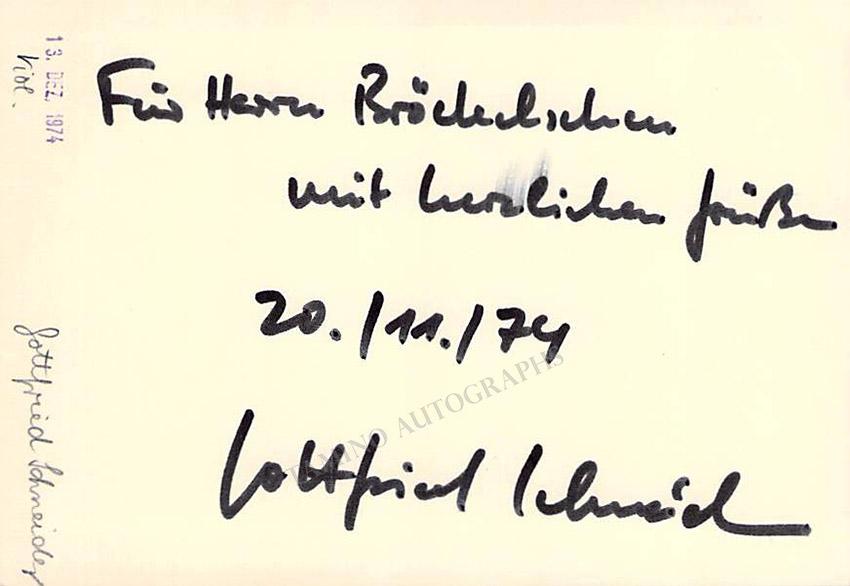 Für Herrn Bröckelschen
mit herzlichen Grüßen
20./11./74
Gottfried Schneider
13. DEZ. 1974
Viol.
Gottfried Schneider
TAMINO AUTOGRAPHS